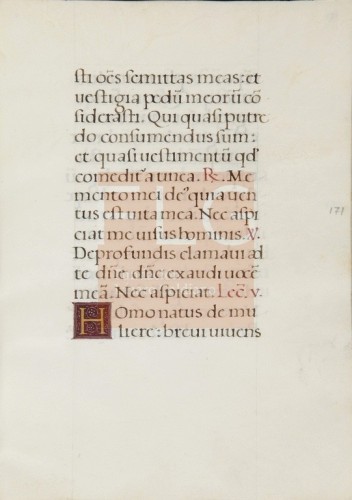 sti oēs semittas meas: et
uestigia pedū meorū cō
siderasti. Qui quasi putre
do consumendus sum:
et quasi uestimentū qd'
comeditʳ a tinea. ℟. Me
mento mei deꝰ quia uen
tus est uita mea. Nec aspi
ciat me uisus hominis. ℣.
De profundis clamaui ad
te dn̄e dn̄e exaudi uocē
meā. Nec aspiciat. Lec̄. v.
Homo natus de mu
liere: breui uiuens
171
TLC